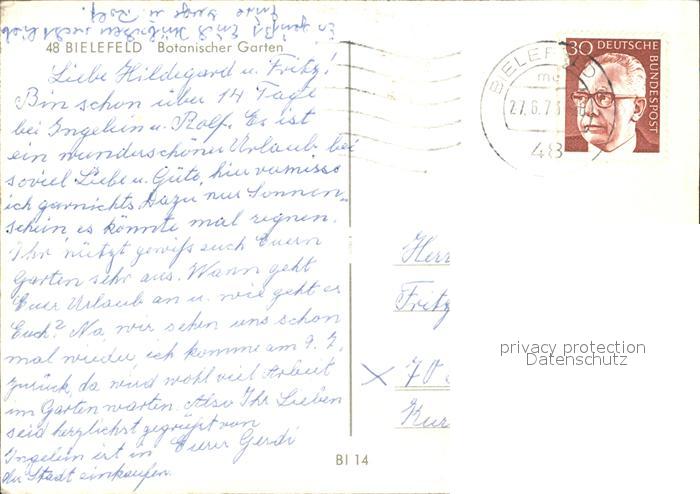 Es grüßt Euch inzwischen recht lieb
Eure Inge u. Rolf.
48 BIELEFELD Botanischer Garten
Liebe Hildegard u. Fritz!
Bin schon über 14 Tage
bei Ingelein u. Rolf. Es ist
ein wunderschöner Urlaub bei
soviel Liebe u. Güte, hier vermisse
ich garnichts. Dazu nur Sonnen-
schein es könnte mal regnen.
Ihr nützt gewiß auch Euern
Garten sehr aus. Wann geht
Euer Urlaub an u. wie geht es
Euch? Na, wir sehen uns schon
mal wieder ich komme am 9. 7.
zurück, da wird wohl viel Arbeit
im Garten warten. Also Ihr Lieben
seid herzlichst gegrüßt von
Eurer Gerdi
Ingelein ist in
der Stadt einkaufen.
BI 14
BIELEFELD
27.6.73
48
30 DEUTSCHE
BUNDESPOST
Herr
Fritz
70
Kur
privacy protection
Datenschutz